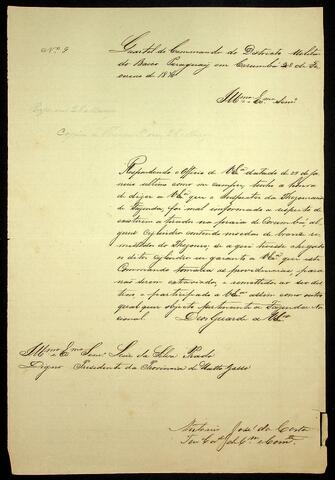 Nº 9
Quartel do Commando do Districto Militar
do Baixo Paraguay em Corumbá 28 de Ja
neiro de 18
Illmo e Exmo Senr.
Respondendo o Officio de VExa datado de 29 de Ja
neiro ultimo como me cumpre, tenho a honra
de dizer a VExa que o Inspector da Thezouraria
de Fazenda, foi mal informado a respeito de
existirem atirados na praia de Corumbá, al
guns contendo moedas de bronze re
mettidos do Thezouro, se aqui tivesse chegado
os ditos eu garanto a VExa que este
Commando tomaria as providencias, para
não serem extraviados, e remettidos ao seo des
tino e participado a VExa assim como outro
qual quer objecto pertencente a Fazenda Na
cional.
Deos Guarde a VExa
Illmo e Exmo Senr. da Silva Prado
Digno Presidente da Provincia de Matto Grosso
Antonio José da Costa
Ten Cel